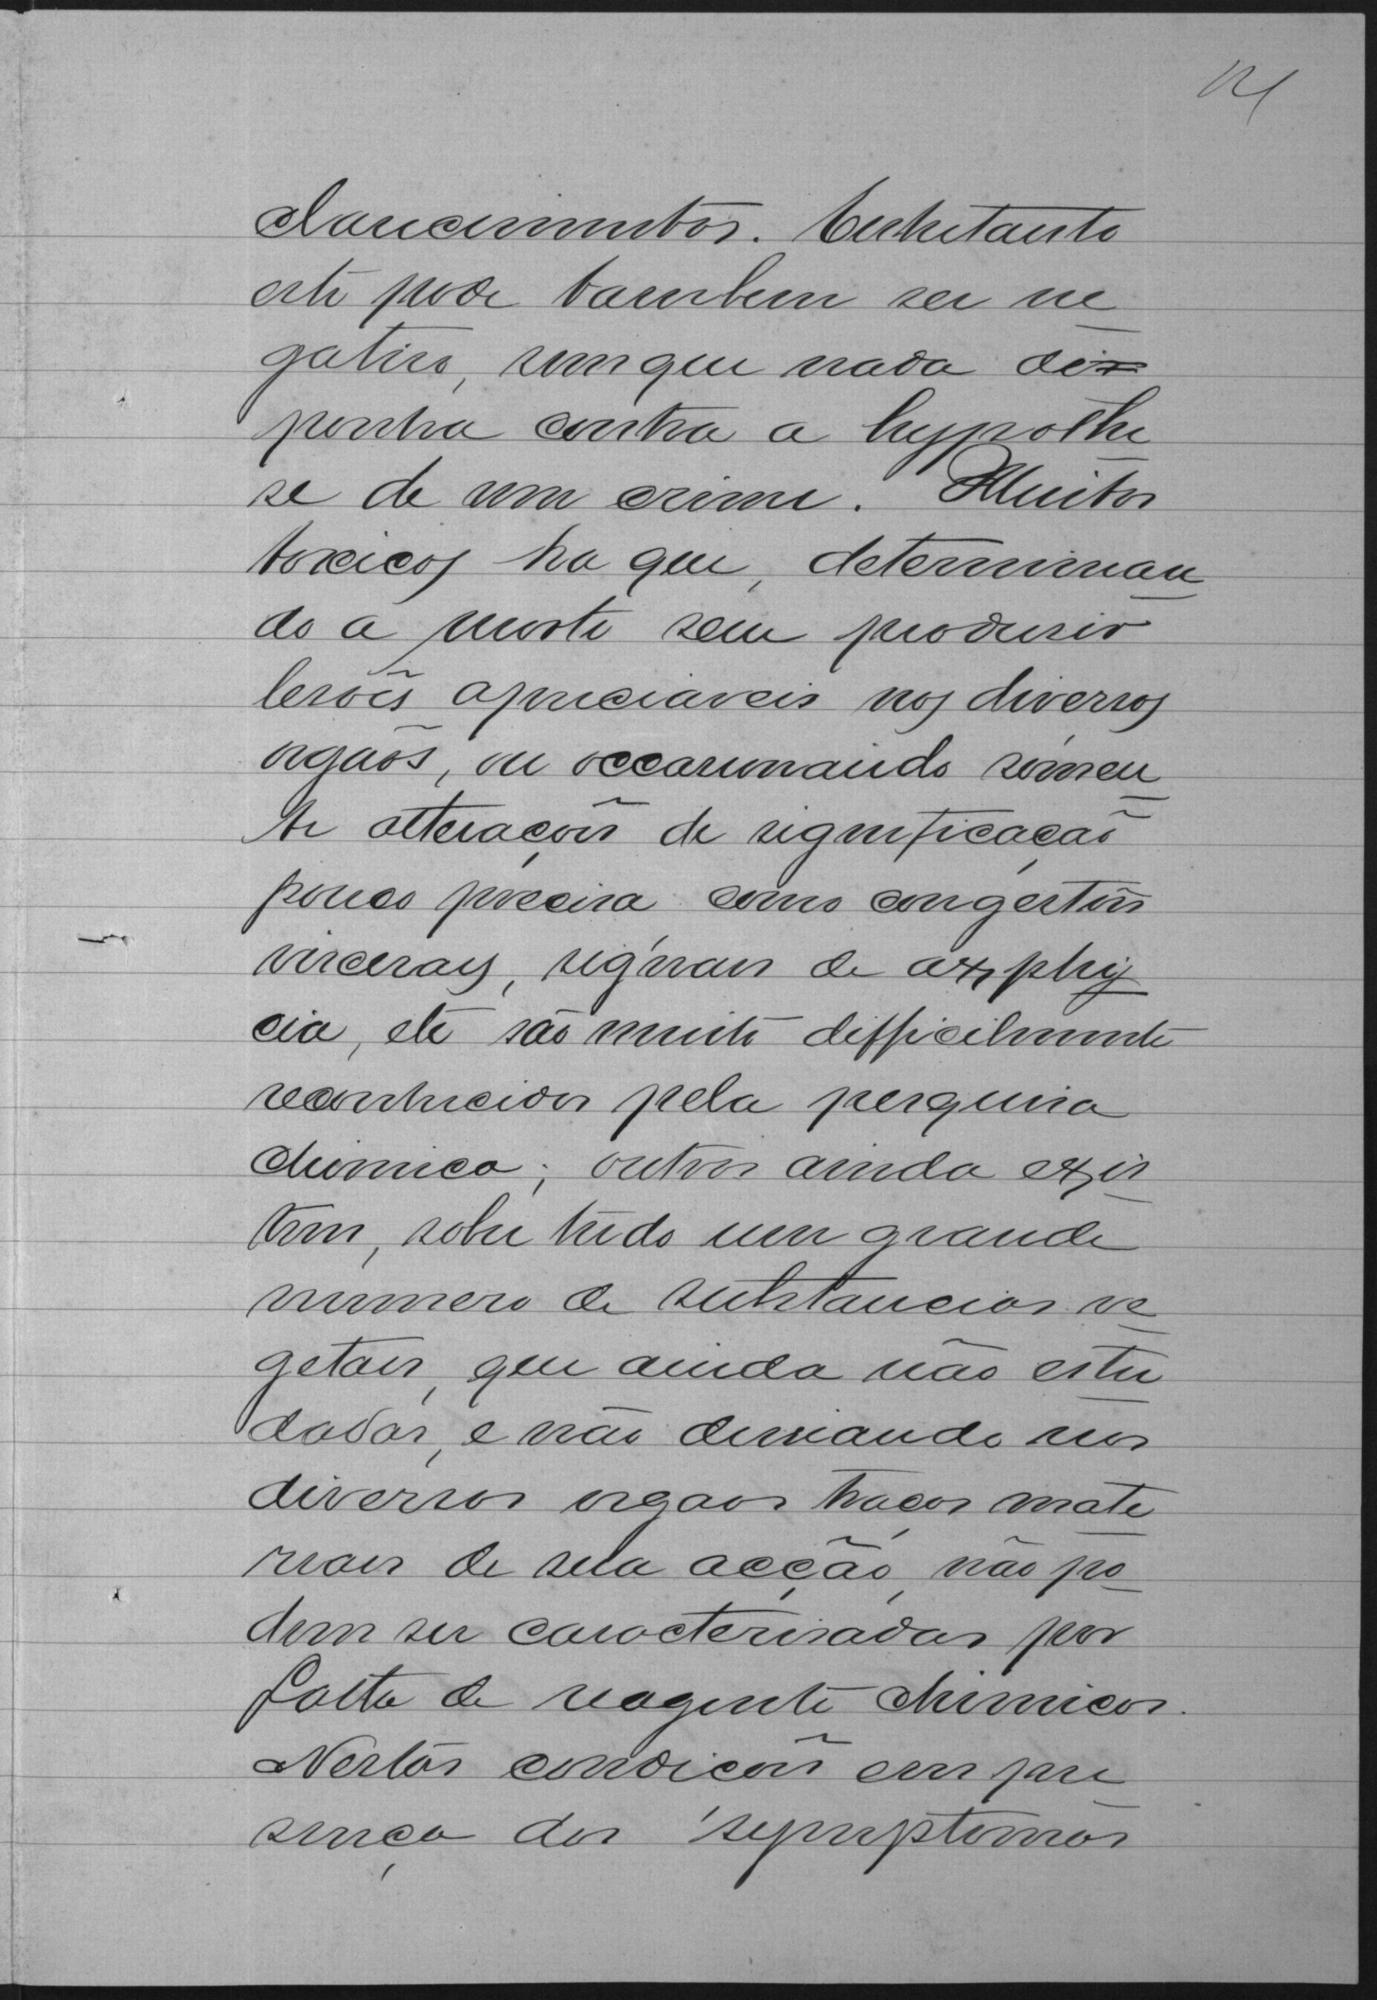 clarecimentos. Entretanto
este pode tambem ser ne
gativo, sem que nada dis
ponha contra a hypothe
se de um crime. Muitos
toxicos ha que, determinan
do a morte sem produsir
lesões apreciaveis nos diversos
orgãos, ou occasionando sómen
te alterações de significação
pouco precisa como congestões
visceraes, signaes de asphy
cia, etc são muito difficilmente
reconhecidos pela pesquisa
chimica; outros ainda exis
tem, sobre tudo um grande
numero de substancias ve
getaes, que ainda não estu
dadas, e não deixando nos
diversos orgaos traços mate
riaes de sua acção, não po
dem ser caracterisadas por
falta de reagente chimicos.
Nestas condicões em pre
sença dos symptomas